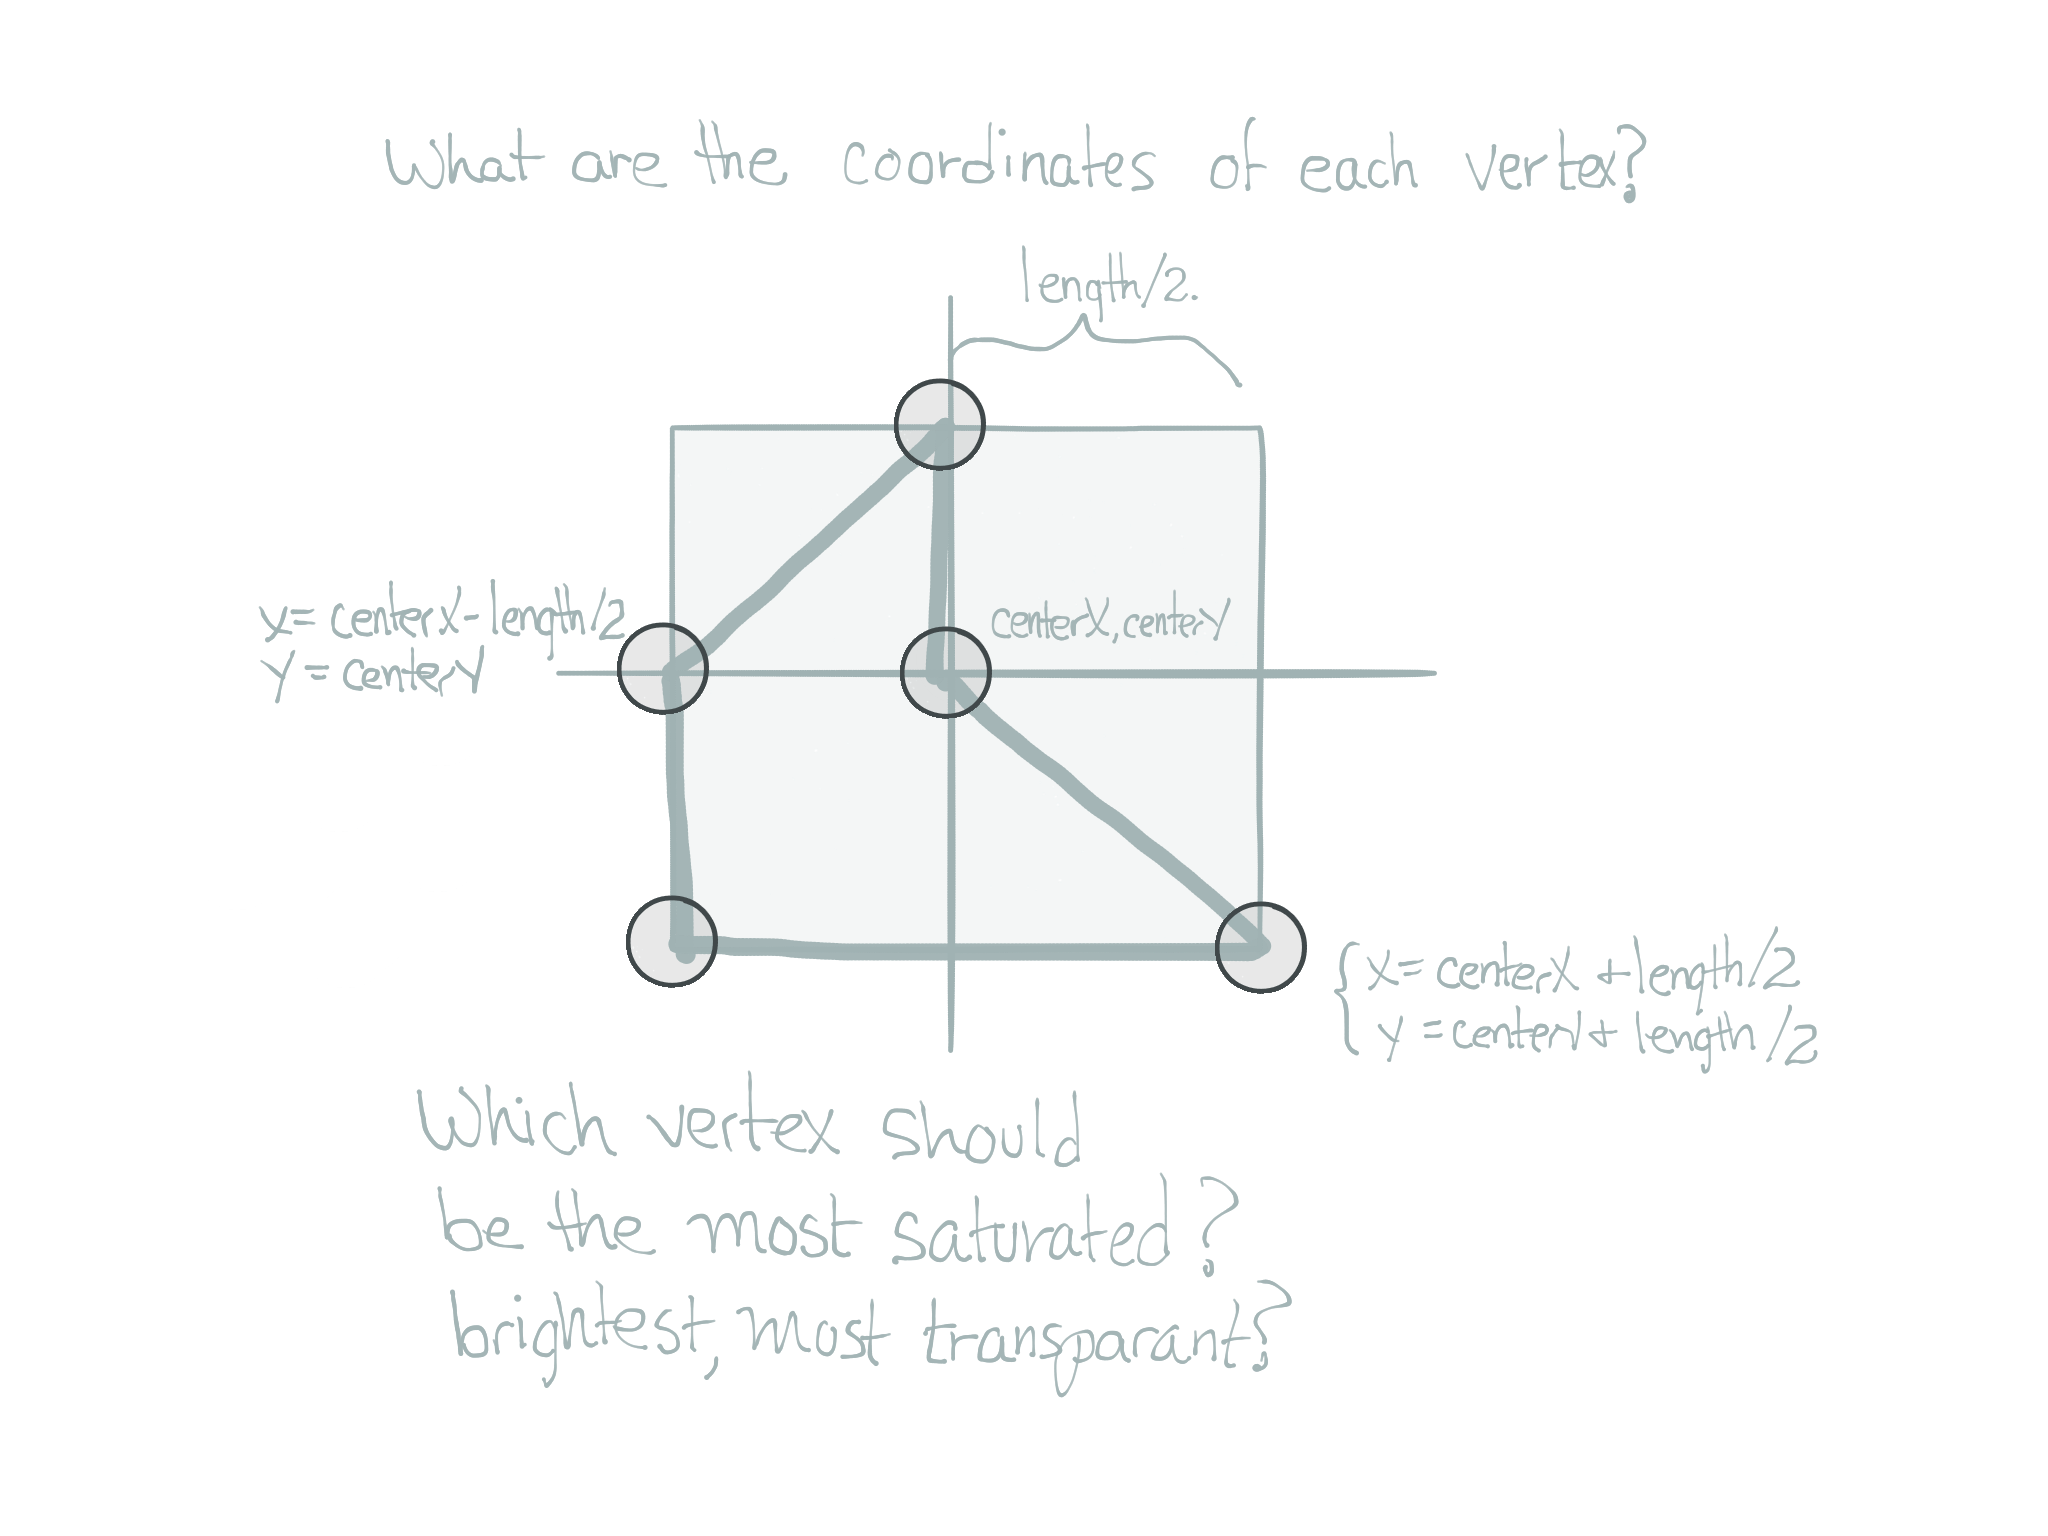 What are the coordinates of each vertex?
length/2.
x= centerX-length/2
y = centerY
centerX, centerY
x= centerX + length/2
y = centerY + length/2
Which vertex should
be the most saturated?
brightest, most transparant?